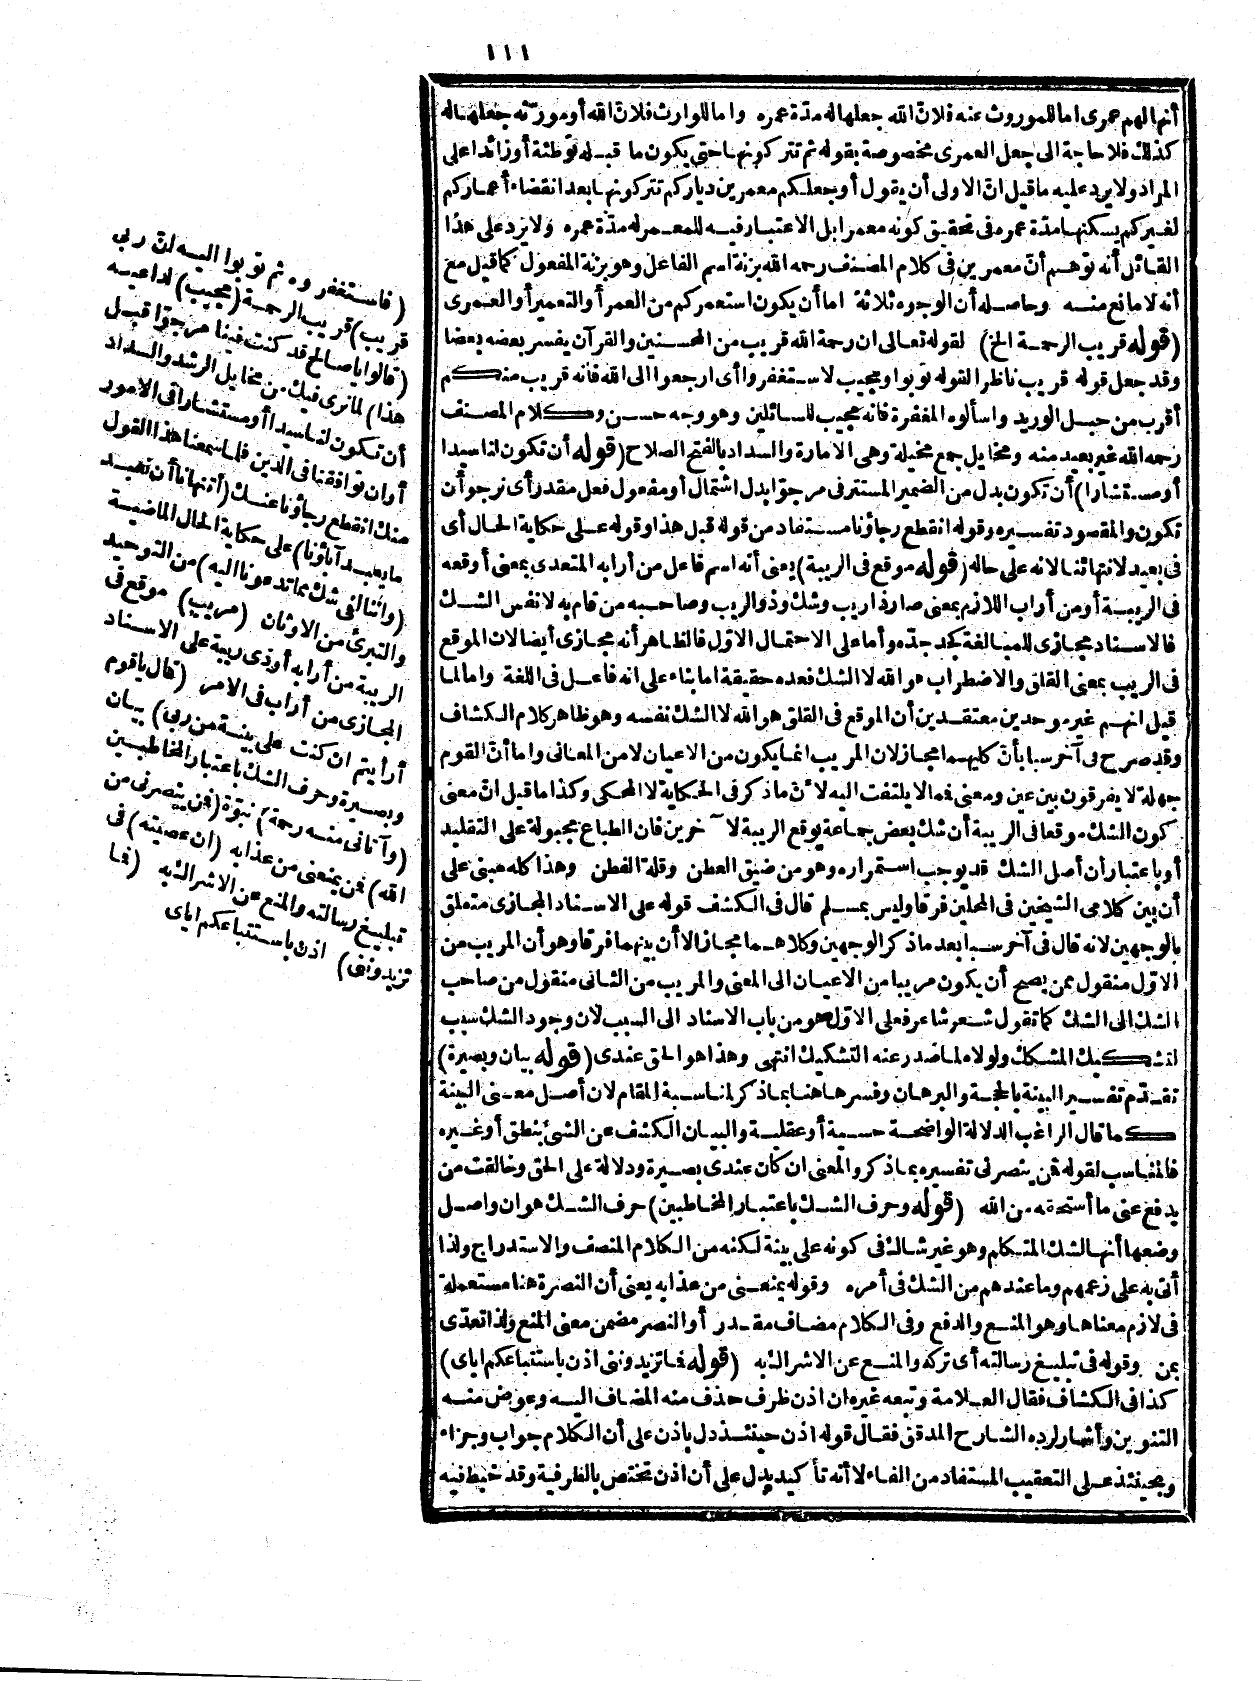 ١١١
أنها لهم عمرى اما للموروث عنه فلان الله جعلها له مدّة عمره واما للوارث فلان الله أو مورّثه جعلها له
كذلك فلا حاجة الى جعل العمرى مخصوصة بقوله ثم تتركونها حتى يكون ما قبله توطئة أو زائدا على
المراد ولا يرد عليه ما قيل انّ الاولى أن يقول أو جعلكم معمرين دياركم تتركونها بعد انقضاء أعماركم
لغيركم يسكنها مدّة عمره فى تحقيق كونه معمرا بل الاعتبار فيه للمعمر له مدّة عمره ولا يرد على هذا
القائل أنه توهم أنّ معمرين فى كلام المصنف رحمه الله بزنة اسم الفاعل وهو بزنة المفعول كما قيل مع
أنه لا مانع منه وحاصله أن الوجوه ثلاثة اما أن يكون استعمركم من العمر أو التعمير أو العمرى
(قوله قريب الرحمة الخ) لقوله تعالى ان رحمة الله قريب من المحسنين والقرآن يفسر بعضه بعضا
وقد جعل قوله قريب ناظرا لقوله توبوا ومجيب لاستغفروا أى ارجعوا الى الله فانه قريب منكم
أقرب من حبل الوريد واسألوه المغفرة فانه مجيب للسائلين وهو وجه حسن وكلام المصنف
رحمه الله غير بعيد منه ومخايل جمع مخيلة وهى الامارة والسداد بالفتح الصلاح (قوله أن تكون لنا سيدا
أو مستشارا) أن تكون بدل من الضمير المستتر فى مرجوّا بدل اشتمال أو مفعول فعل مقدر أى نرجو أن
تكون والمقصود تفسيره وقوله انقطع رجاؤنا مستفاد من قوله قبل هذا وقوله على حكاية الحال أى
فى يعبد لا نهاتنا لانه على حاله (قوله موقع فى الريبة) يعنى أنه اسم فاعل من أرابه المتعدى بمعنى أوقعه
فى الريبة أو من أراب اللازم بمعنى صار ذا ريب وشك وذو الريب وصاحبه من قام به لا نفس الشك
فالاسناد مجازى للمبالغة كجد جدّه وأما على الاحتمال الاوّل فالظاهر أنه مجازى أيضا لان الموقع
فى الريب بمعنى القلق والاضطراب هو الله لا الشك فعده حقيقة اما بناء على انه فاعل فى اللغة واما لما
قيل انهم غير موحدين معتقدين أن الموقع فى القلق هو الله لا الشك نفسه وهو ظاهر كلام الكشاف
وقد صرح فى آخر سبا بأنّ كليهما مجاز لان المريب انما يكون من الاعيان لا من المعانى واما أنّ القوم
جهلة لا يفرقون بين عين ومعنى فمما لا يلتفت اليه لأن ما ذكر فى الحكاية لا المحكى وكذا ما قيل انّ معنى
كون الشك موقعا فى الريبة أن شك بعض جماعة يوقع الريبة لآخرين فان الطباع مجبولة على التقليد
أو باعتبار أن أصل الشك قد يوجب استمراره وهو من ضيق العطن وقلة الفطن وهذا كله مبنى على
أن بين كلامى الشيخين فى المحلين فرقا وليس بمسلم قال فى الكشف قوله على الاسناد المجازى متعلق
بالوجهين لانه قال فى آخر سبا بعد ما ذكر الوجهين وكلاهما مجاز الا أن بينهما فرقا وهو أن المريب من
الاوّل منقول ممن يصح أن يكون مريبا من الاعيان الى المعنى والمريب من الثانى منقول من صاحب
الشك الى الشك كما تقول شعر شاعر فعلى الاوّل هو من باب الاسناد الى السبب لان وجود الشك سبب
لتشكيك المشكك ولولاه لما صدر عنه التشكيك انتهى وهذا هو الحق عندى (قوله بيان وبصيرة)
تقدّم تفسير البينة بالحجة والبرهان وفسرها هنا بما ذكر لمناسبة المقام لان أصل معنى البينة
كما قال الراغب الدلالة الواضحة حسية أو عقلية والبيان الكشف عن الشئ بنطق أو غيره
فالمناسب لقوله فمن ينصرنى تفسيره بما ذكر والمعنى ان كان عندى بصيرة ودلالة على الحق وخالفت من
يدفع عنى ما أستحقه من الله (قوله وحرف الشك باعتبار المخاطبين) حرف الشك هو ان وأصل
وضعها أنها لشك المتكلم وهو غير شاك فى كونه على بينة لكنه من الكلام المنصف والاستدراج ولذا
أتى به على زعمهم وما عندهم من الشك فى أمره وقوله يمنعنى من عذابه يعنى أن النصرة هنا مستعملة
فى لازم معناها وهو المنع والدفع وفى الكلام مضاف مقدر أو النصر مضمن معنى المنع ولذا تعدّى
بمن وقوله فى تبليغ رسالته أى تركه والمنع عن الاشراك به (قوله فما تزيدوننى اذن باستتباعكم اياى)
كذا فى الكشاف فقال العلامة وتبعه غيره ان اذن ظرف حذف منه المضاف اليه وعوض منه
التنوين وأشار لرده الشارح المدقق فقال قوله اذن حينئذ دل باذن على أن الكلام جواب وجزاء
وبحينئذ على التعقيب المستفاد من الفاء لا أنه تأكيد يدل على أن اذن تختص بالظرفية وقد خبط فيه
(فاستغفروه ثم توبوا اليه ان ربى
قريب) قريب الرحمة (مجيب) لداعيه
(قالوا يا صالح قد كنت فينا مرجوّا قبل
هذا) لما نرى فيك من مخايل الرشد والسداد
أن تكون لنا سيدا أو مستشارا فى الامور
أو ان توافقنا فى الدين فلما سمعنا هذا القول
منك انقطع رجاؤنا عنك (أتنهانا أن نعبد
ما يعبد آباؤنا) على حكاية الحال الماضية
(واننا لفى شك مما تدعونا اليه) من التوحيد
والتبرئ من الاوثان (مريب) موقع فى
الريبة من أرابه أو ذى ريبة على الاسناد
المجازى من أراب فى الامر (قال يا قوم
أرأيتم ان كنت على بينة من ربى) بيان
وبصيرة وحرف الشك باعتبار المخاطبين
(وآتانى منه رحمة) نبوّة (فمن ينصرنى من
الله) فمن يمنعنى من عذابه (ان عصيته) فى
تبليغ رسالته والمنع عن الاشراك به (فما
تزيدوننى) اذن باستتباعكم اياى